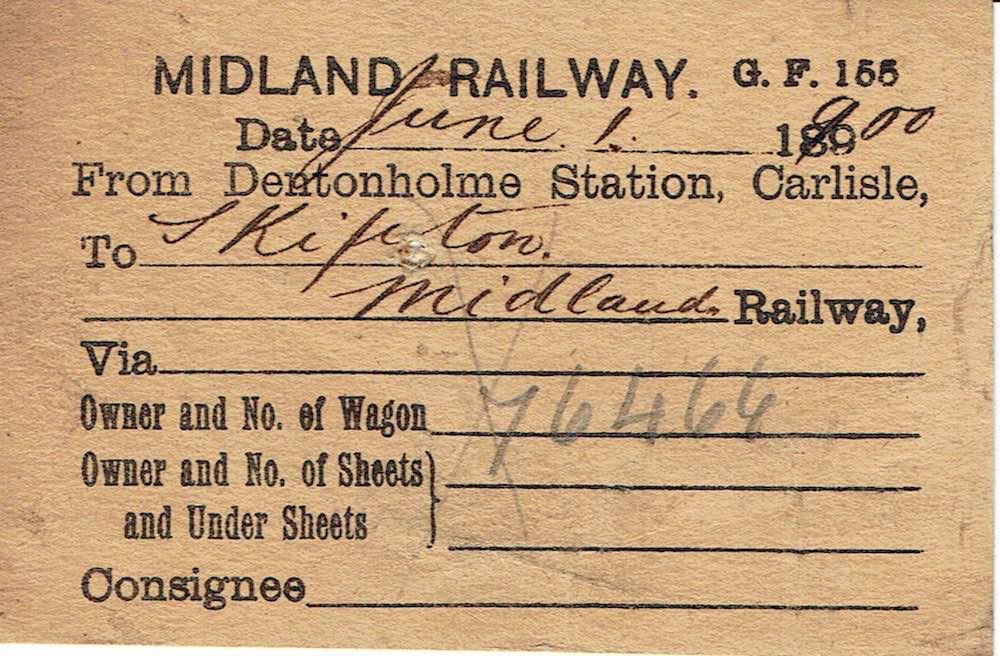 MIDLAND RAILWAY. G. F. 155
Date June 1. 1900
From Dentonholme Station, Carlisle,
To Skipton.
Midland. Railway,
Via
Owner and No. of Wagon 76466
Owner and No. of Sheets
and Under Sheets
Consignee